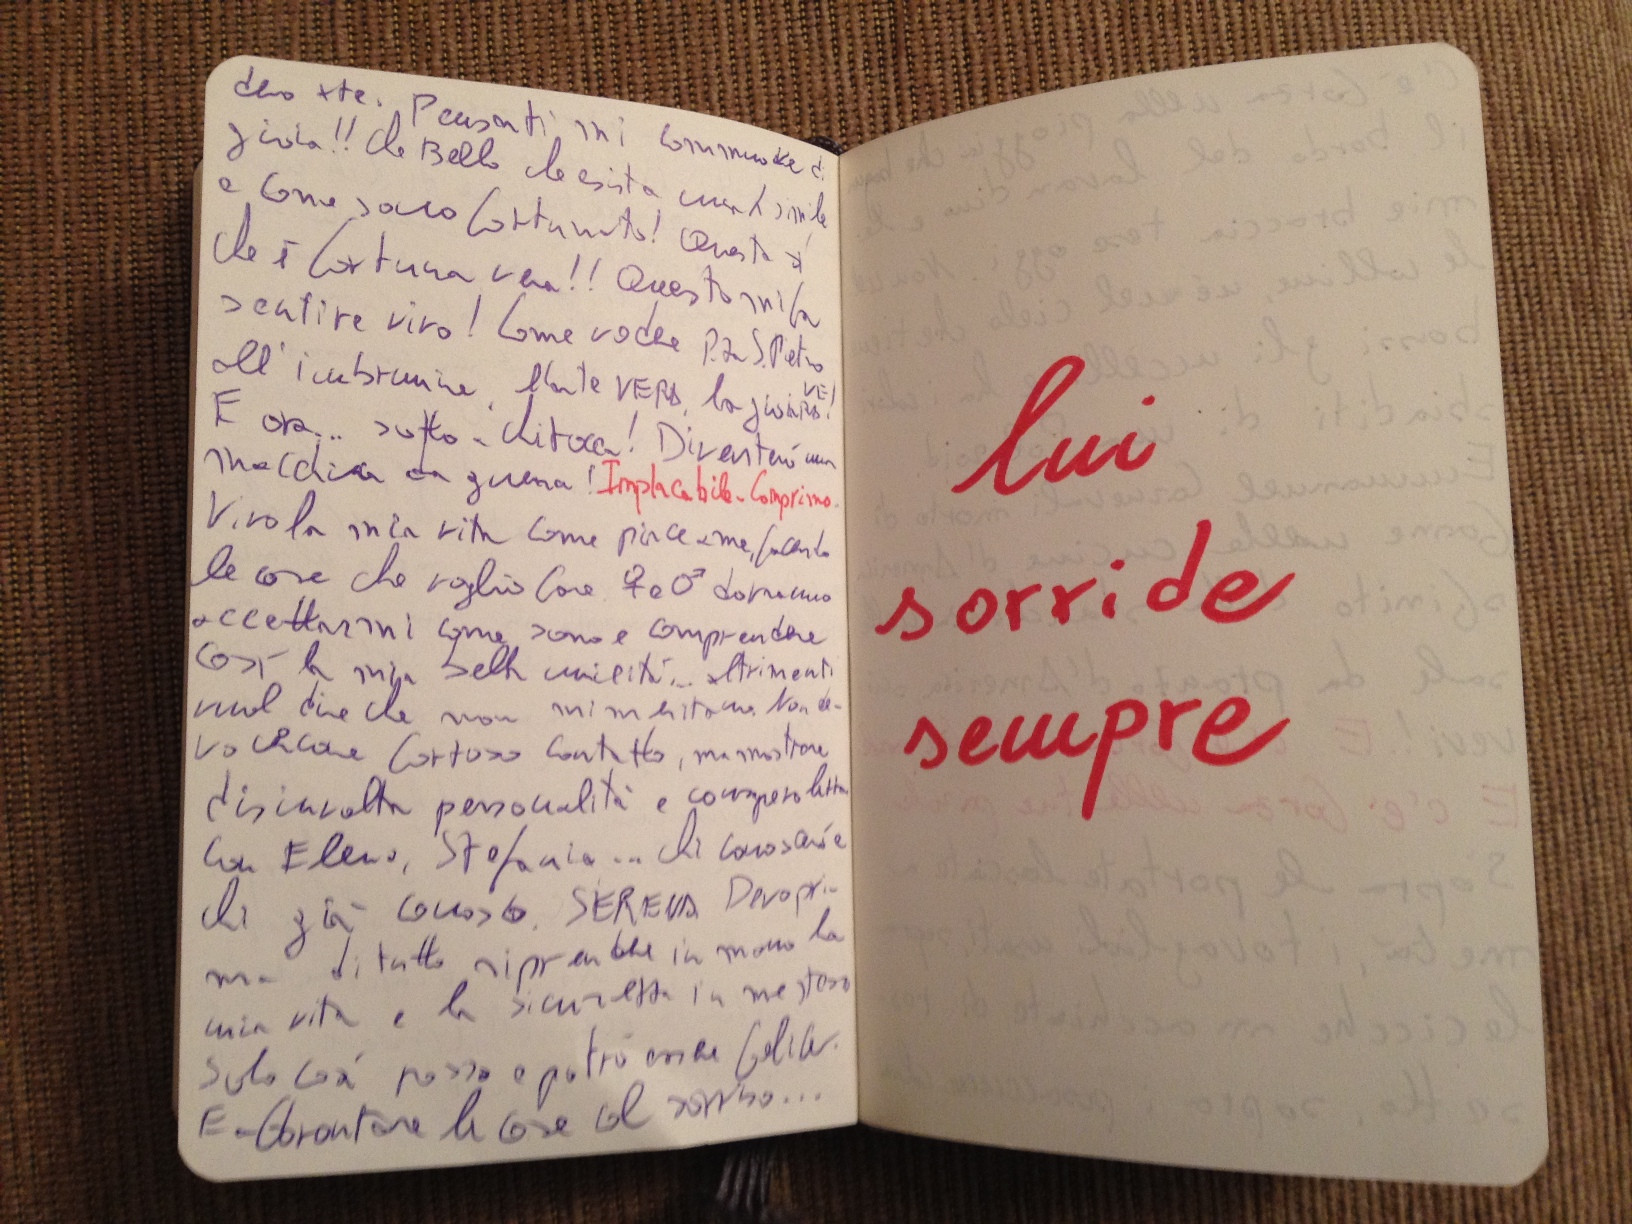 devo xte. Pensarti mi commuove di
gioia!! Che Bello che esista una tsimile
e come sono fortunato! Questa sì
che è fortuna vera!! Questo mi fa
sentire vivo! Come vedere P.za S. Pietro
all'imbrunire. Mente VERA, la gioia VE!
E ora... sotto a chi tocca! Diventerò una
macchina da guerra! Implacabile. Comprimo.
Vivo la mia vita come piace a me, facendo
le cose che voglio fare ♀ e ♂ dovranno
accettarmi come sono e comprendere
così la mia bella unicità... altrimenti
vuol dire che non mi meritano. Non de-
vo cercare fortuso contatto, ma mostrare
disinvolta personalità e consapevolezza
con Elena, Stefania... chi conoscerò e
chi già conosco. SERENA Devo pri-
ma di tutto riprendere in mano la
mia vita e la sicurezza in me stesso
solo così posso e potrò essere felice.
E affrontare le cose col sorriso...
lui
sorride
sempre